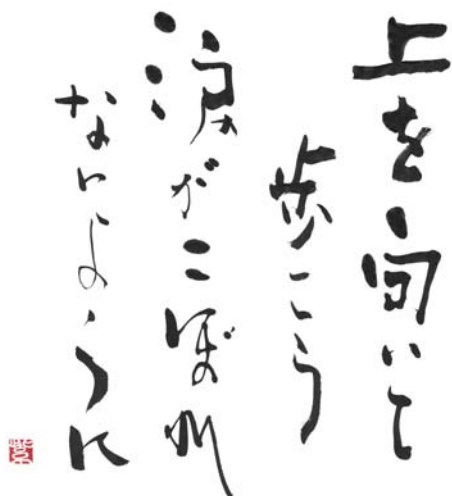 上を向いて
歩こう
涙がこぼれ
ないように